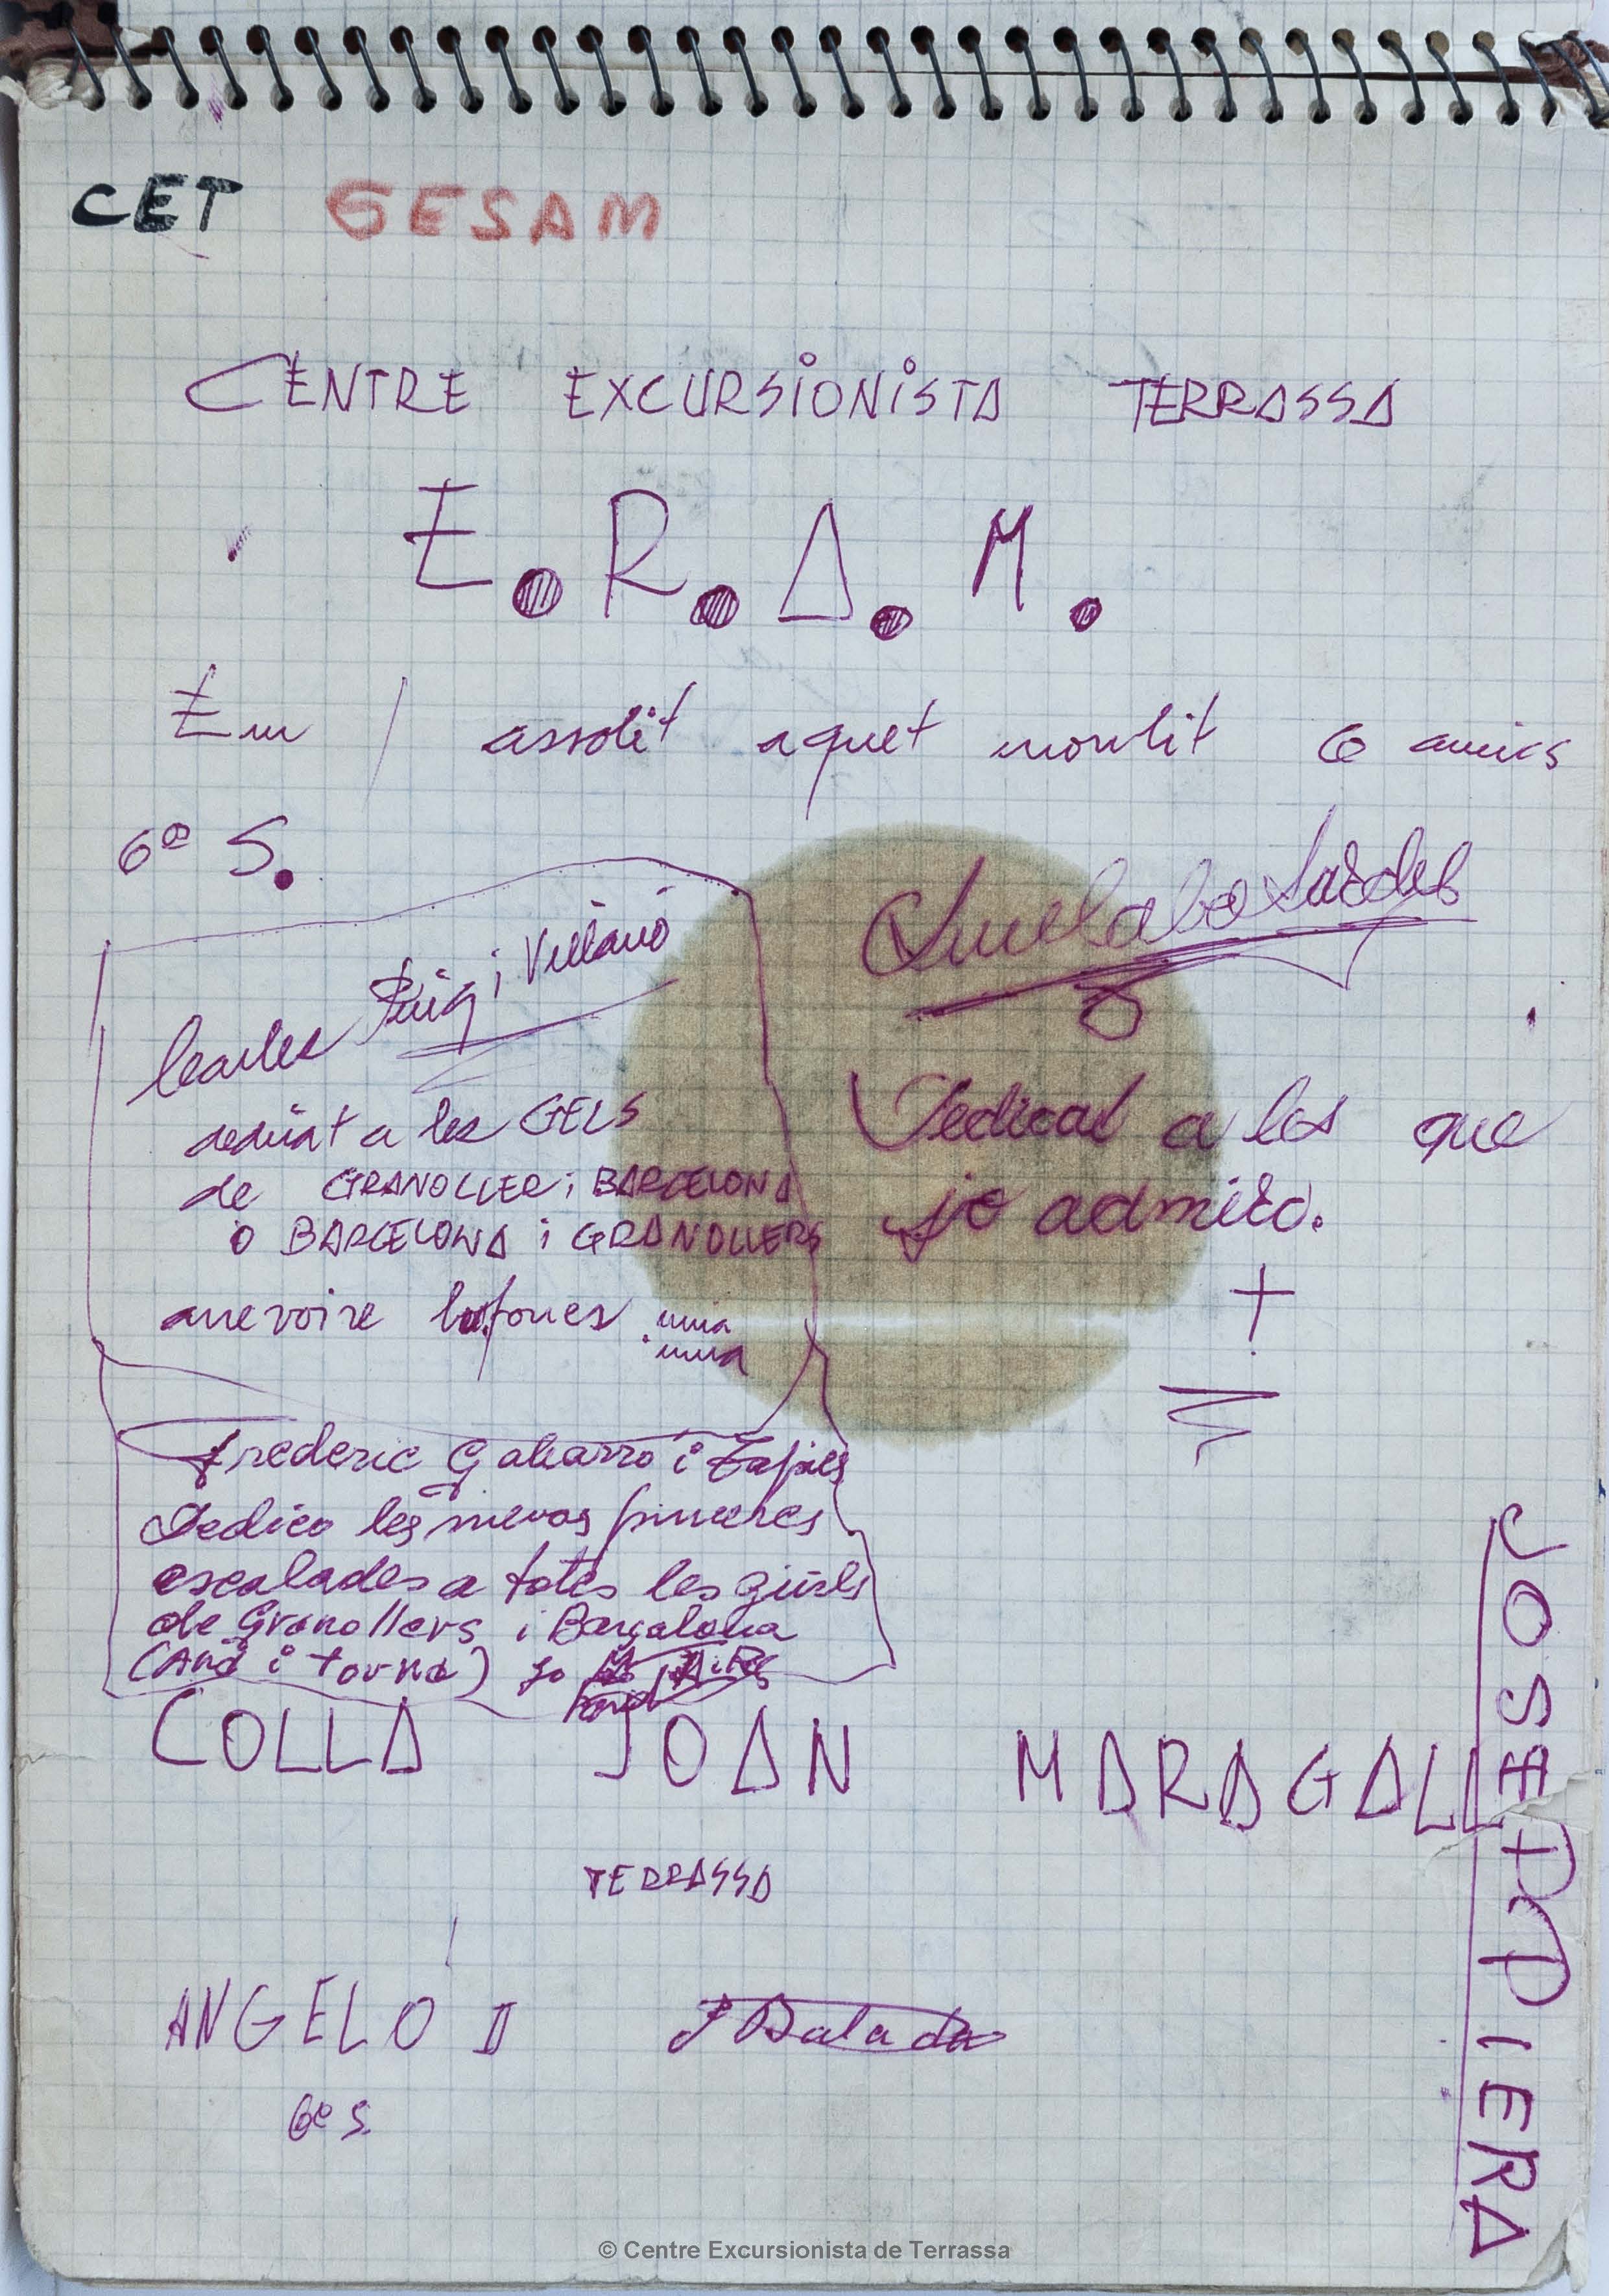 CET GESAM
CENTRE EXCURSIONISTA TERRASSA
E.R.A.M.
Em assolit aquet montit 6 amics
6ª S.
Carles Puig i
dedicat a les GELS
de GRANOLLER i BARCELONA
o BARCELONA i GRANOLLERS
anevoire bufones
Dedicat a les que
jo admiro.
+
Frederic Gabarro i Tapies
Dedico les mevas pimeres
escalades a totes les girls
de Granollers i Barçalona
(Anà i torna) jo
COLLA JOAN MARAGALL
TERRASSA
JOSEP PIERA
ANGELO II J Balada
6è S.
© Centre Excursionista de Terrassa